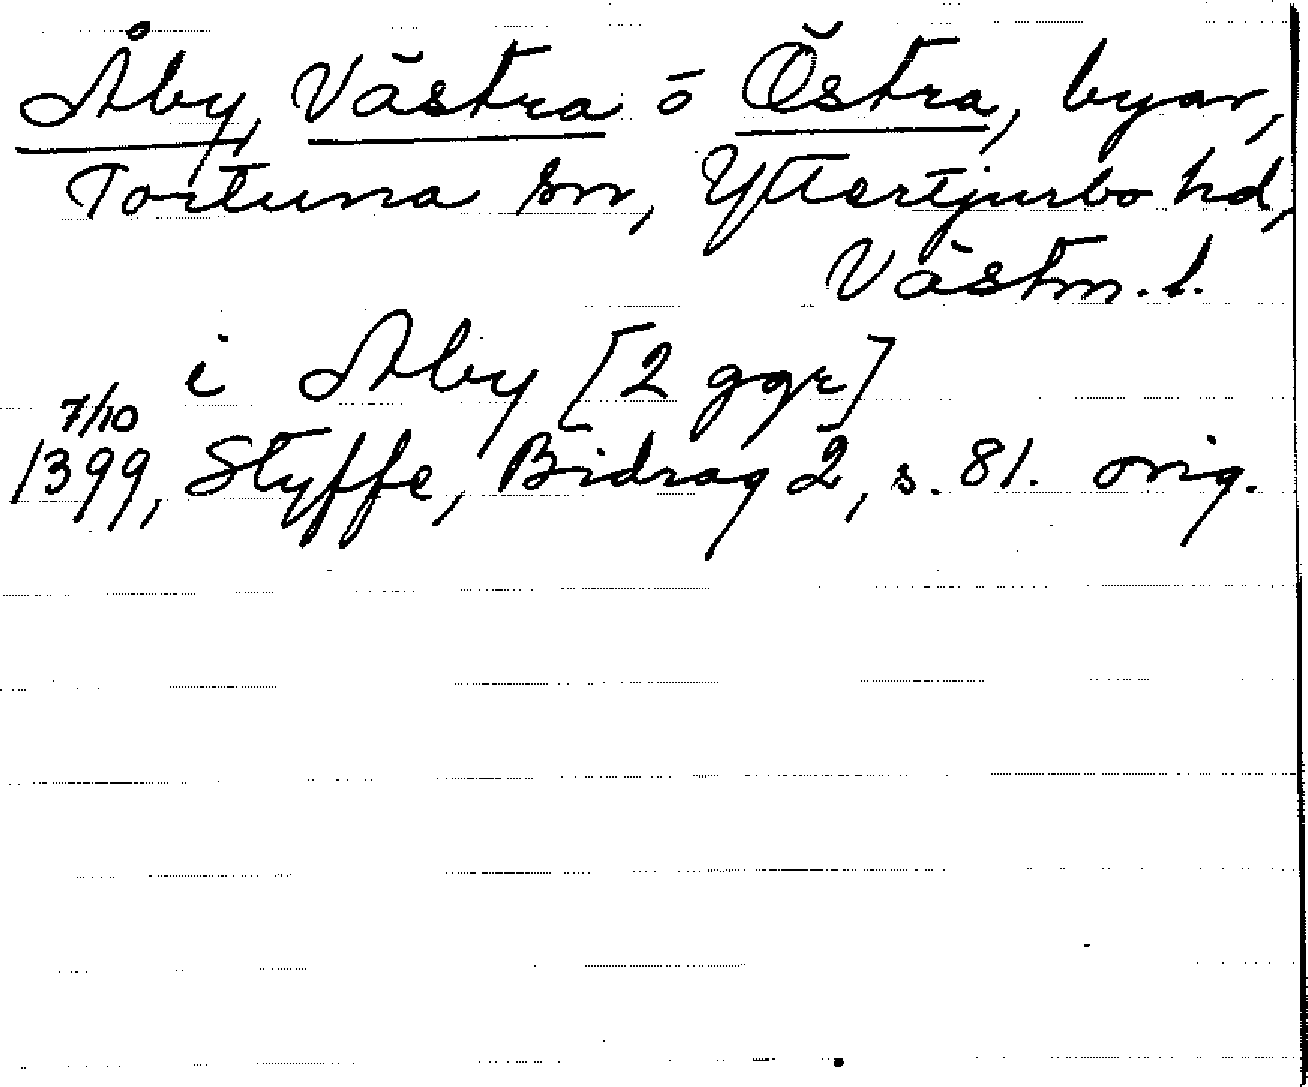 Åby, Västra o Östra, byar,
Tortuna sn, Yttertjurbo hd,
Västm. l.
i Aby [2 ggr]
7/10
1399, Styffe, Bidrag 2, s. 81. orig.